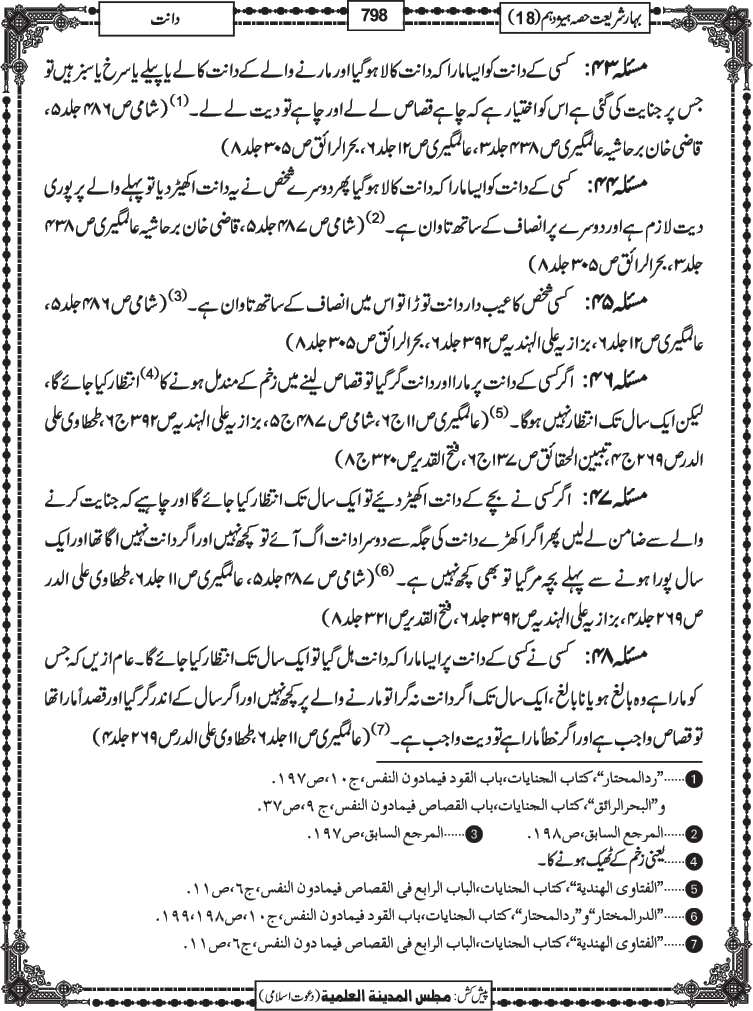 بہارِ شریعت حصہ ہیژدہم (18)
798
دانت
مسئلہ ۴۳: کسی کے دانت کو ایسا مارا کہ دانت کالا ہو گیا اور مارنے والے کے دانت کالے یا پیلے یا سرخ یا سبز ہیں تو
جس پر جنایت کی گئی ہے اس کو اختیار ہے کہ چاہے قصاص لے لے اور چاہے تو دیت لے لے۔(1) (شامی ص ۴۸۶ جلد ۵،
قاضی خان بر حاشیہ عالمگیری ص ۴۳۸ جلد ۳، عالمگیری ص ۱۲ جلد ۶، بحرالرائق ص ۳۰۵ جلد ۸)
مسئلہ ۴۴: کسی کے دانت کو ایسا مارا کہ دانت کالا ہو گیا پھر دوسرے شخص نے یہ دانت اکھیڑ دیا تو پہلے والے پر پوری
دیت لازم ہے اور دوسرے پر انصاف کے ساتھ تاوان ہے۔(2) (شامی ص ۴۸۷ جلد ۵، قاضی خان بر حاشیہ عالمگیری ص ۴۳۸
جلد ۳، بحرالرائق ص ۳۰۵ جلد ۸)
مسئلہ ۴۵: کسی شخص کا عیب دار دانت توڑا تو اس میں انصاف کے ساتھ تاوان ہے۔(3) (شامی ص ۴۸۶ جلد ۵،
عالمگیری ص ۱۲ جلد ۶، بزازیہ علی الہندیہ ص ۳۹۲ جلد ۶، بحرالرائق ص ۳۰۵ جلد ۸)
مسئلہ ۴۶: اگر کسی کے دانت پر مارا اور دانت گر گیا تو قصاص لینے میں زخم کے مندمل ہونے کا(4) انتظار کیا جائے گا،
لیکن ایک سال تک انتظار نہیں ہوگا۔(5) (عالمگیری ص ۱۱ ج ۶، شامی ص ۴۸۷ ج ۵، بزازیہ علی الہندیہ ص ۳۹۲ ج ۶، طحطاوی علی
الدر ص ۲۶۹ ج ۴، تبیین الحقائق ص ۱۳۷ ج ۶، فتح القدیر ص ۳۲۰ ج ۸)
مسئلہ ۴۷: اگر کسی نے بچے کے دانت اکھیڑ دیئے تو ایک سال تک انتظار کیا جائے گا اور چاہیے کہ جنایت کرنے
والے سے ضامن لے لیں پھر اگر اکھڑے دانت کی جگہ سے دوسرا دانت اگ آئے تو کچھ نہیں اور اگر دانت نہیں اگا تھا اور ایک
سال پورا ہونے سے پہلے بچہ مر گیا تو بھی کچھ نہیں ہے۔(6) (شامی ص ۴۸۷ جلد ۵، عالمگیری ص ۱۱ جلد ۶، طحطاوی علی الدر
ص ۲۶۹ جلد ۴، بزازیہ علی الہندیہ ص ۳۹۲ جلد ۶، فتح القدیر ص ۳۲۱ جلد ۸)
مسئلہ ۴۸: کسی نے کسی کے دانت پر ایسا مارا کہ دانت ہل گیا تو ایک سال تک انتظار کیا جائے گا۔ عام ازیں کہ جس
کو مارا ہے وہ بالغ ہو یا نابالغ، ایک سال تک اگر دانت نہ گرا تو مارنے والے پر کچھ نہیں اور اگر سال کے اندر گر گیا اور قصداً مارا تھا
تو قصاص واجب ہے اور اگر خطأً مارا ہے تو دیت واجب ہے۔(7) (عالمگیری ص ۱۱ جلد ۶، طحطاوی علی الدر ص ۲۶۹ جلد ۴)
1 ......"ردالمحتار"، كتاب الجنايات، باب القود فيمادون النفس، ج ١٠، ص ١٩٧.
و"البحرالرائق"، كتاب الجنايات، باب القصاص فيمادون النفس، ج ٩، ص ٣٧.
2 ......المرجع السابق، ص ١٩٨. 3 ......المرجع السابق، ص ١٩٧.
4 ......یعنی زخم کے ٹھیک ہونے کا۔
5 ......"الفتاوى الهندية"، كتاب الجنايات، الباب الرابع فى القصاص فيمادون النفس، ج ٦، ص ١١.
6 ......"الدرالمختار"و"ردالمحتار"، كتاب الجنايات، باب القود فيمادون النفس، ج ١٠، ص ١٩٨، ١٩٩.
7 ......"الفتاوى الهندية"، كتاب الجنايات، الباب الرابع فى القصاص فيما دون النفس، ج ٦، ص ١١.
پیش کش: مجلس المدينة العلمية (دعوت اسلامی)